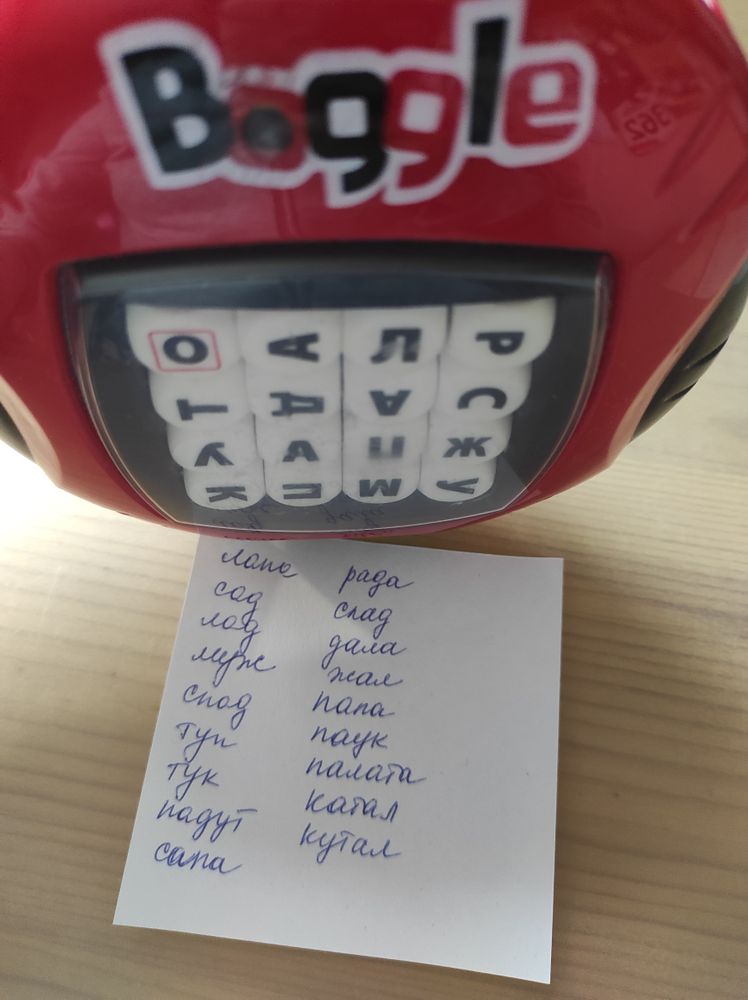 Boggle
362
О А Л Р
Т Д А С
У А П Ж
К П М У
лапа
сад
лад
муж
спад
туп
тук
падут
сапа
рада
спад
дала
жал
папа
паук
палата
катал
кутал